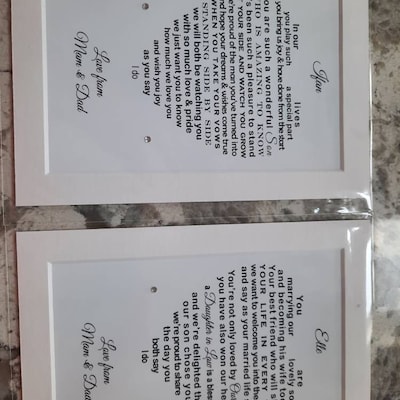 Ifan
In our lives
you play such a special part
you bring us joy & have done from the start
ou are such a wonderful Son
HO IS AMAZING TO KNOW
's been such a pleasure to stand
YOUR SIDE AND WATCH YOU GROW
e're proud of the man you've turned into
nd hope your dreams & wishes come true
WHEN YOU TAKE YOUR VOWS
STANDING SIDE BY SIDE
we will both be watching you
with so much love & pride
we just want you to know
how much we love you
and wish you joy
as you say
I do
Love from
Mum & Dad
Elle
You are
marrying our lovely so
and becoming his wife to
Your best friend who will s
YOUR LIFE IN EVERY
we want to welcome you to the
and say as your married life
You're not only loved by
you have also won our he
a Daughter in Law is a bless
and we're delighted tha
our son chose you
we're proud to share
the day you
both say
I do
Love from
Mum & Dad